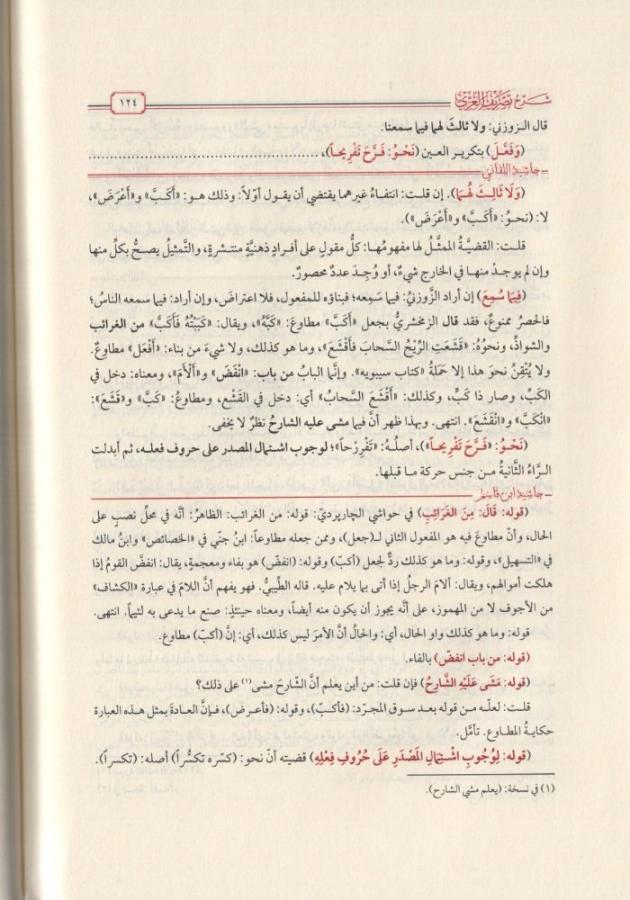 شرح تصريف العزي
١٢٤
قال الزوزني: ولا ثالثَ لهما فيما سمعنا.
(وَفَعَّلَ) بتكرير العين (نَحْوُ: فَرَّحَ تَفْرِيحاً)، ........................
حاشية اللقاني
(وَلَا ثَالِثَ لَهُمَا). إن قلت: انتفاءُ غيرهما يقتضي أن يقول أوّلاً: وذلك هو: «أَكَبَّ» و«أَعْرَضَ»،
لا: (نحوُ: «أَكَبَّ» و«أَعْرَضَ»).
قلت: القضيَّةُ الممثَّلُ لها مفهومُها: كلٌّ مقولٌ على أفرادٍ ذهنيَّةٍ منتشرةٍ، والتَّمثيلُ يصحُّ بكلٍّ منها
وإن لم يوجدْ منها في الخارج شيءٌ، أو وُجِدَ عددٌ محصورٌ.
(فِيمَا سُمِعَ) إن أراد الزَّوزنيُّ: فيما سَمِعه؛ فبناؤه للمفعول، فلا اعتراضَ، وإن أراد: فيما سمعه الناسُ؛
فالحصرُ ممنوعٌ، فقد قال الزمخشريُّ بجعل «أَكَبَّ» مطاوعَ: «كَبَّهُ»، ويقال: «كَبَبْتُهُ فَأَكَبَّ» من الغرائب
والشواذِّ، ونحوُهُ: «قَشَعَتِ الرِّيْحُ السَّحابَ فأَقْشَعَ»، وما هو كذلك، ولا شيءَ من بناء: «أَفْعَل» مطاوعٌ.
ولا يُتْقِنُ نحوَ هذا إلا حَمَلَةُ «كتاب سيبويه». وإنَّما البابُ من باب: «انْفَضَّ» و«أَلْأَمَ»، ومعناه: دخل في
الكَبِّ، وصار ذا كَبٍّ، وكذلك: «أَقْشَعَ السَّحابُ» أي: دخل في القَشْع، ومطاوعُ: «كَبَّ» و«قَشَعَ»:
«انْكَبَّ» و«انْقَشَعَ». انتهى. وبهذا ظهر أنَّ فيما مشى عليه الشارحُ نظرٌ لا يخفى.
(نَحْوُ: «فَرَّحَ تَفْرِيحاً»)، أصلُهُ: «تَفْرِرْحاً»؛ لوجوب اشتمال المصدر على حروف فعله، ثم أبدلت
الرَّاءُ الثانيةُ من جنس حركة ما قبلها.
حاشية ابن قاسم
(قوله: قَالَ: مِنَ الغَرَائِبِ) في حواشي الچارپرديّ: قوله: من الغرائب: الظاهرُ: أنَّه في محلِّ نصبٍ على
الحال، وأنَّ مطاوعَ فيه هو المفعول الثاني لـ(جعل)، وممن جعله مطاوعاً: ابنُ جنّي في «الخصائص» وابنُ مالك
في «التسهيل»، وقوله: وما هو كذلك ردٌّ لجعل (أكبّ) وقوله: (انفضّ) هو بفاء ومعجمةٍ، يقال: انفضَّ القومُ إذا
هلكت أموالهم، ويقال: ألامَ الرجلُ إذا أتى بما يلام عليه. قاله الطِّيبيُّ. فهو يفهم أنَّ اللامَ في عبارة «الكشاف»
من الأجوف لا من المهموز، على أنَّه يجوز أن يكون منه أيضاً، ومعناه حينئذٍ: صنع ما يدعى به لئيماً. انتهى.
قوله: وما هو كذلك واو الحال، أي: والحالُ أنَّ الأمرَ ليس كذلك، أي: إنَّ (أكبّ) مطاوع.
(قوله: من باب انفضّ) بالفاء.
(قوله: مَشَى عَلَيْهِ الشَّارِحُ) فإن قلت: من أين يعلم أنَّ الشّارحَ مشى(١) على ذلك؟
قلت: لعلّه من قوله بعد سوق المجرّد: (فأكبّ)، وقوله: (فأعرض)، فإنَّ العادةَ بمثل هذه العبارة
حكايةُ المطاوع. تأمّل.
(قوله: لِوُجُوبِ اشْتِمَالِ المَصْدَرِ عَلَى حُرُوفِ فِعْلِهِ) قضيته أنَّ نحو: (كسّره تكسُّراً) أصله: (تكسراً).
(١) في نسخة: (يعلم مشي الشارح).